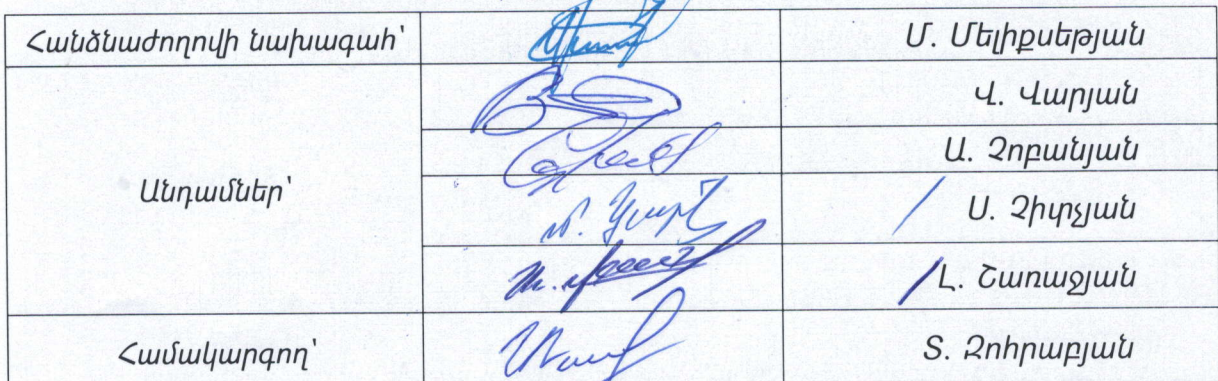 Հանձնաժողովի նախագահ՝ Մ. Մելիքսեթյան
Վ. Վարյան
Ա. Չոբանյան
Անդամներ՝
Ս. Չիւրչյան
Լ. Շառաջյան
Համակարգող՝ Տ. Զոհրաբյան